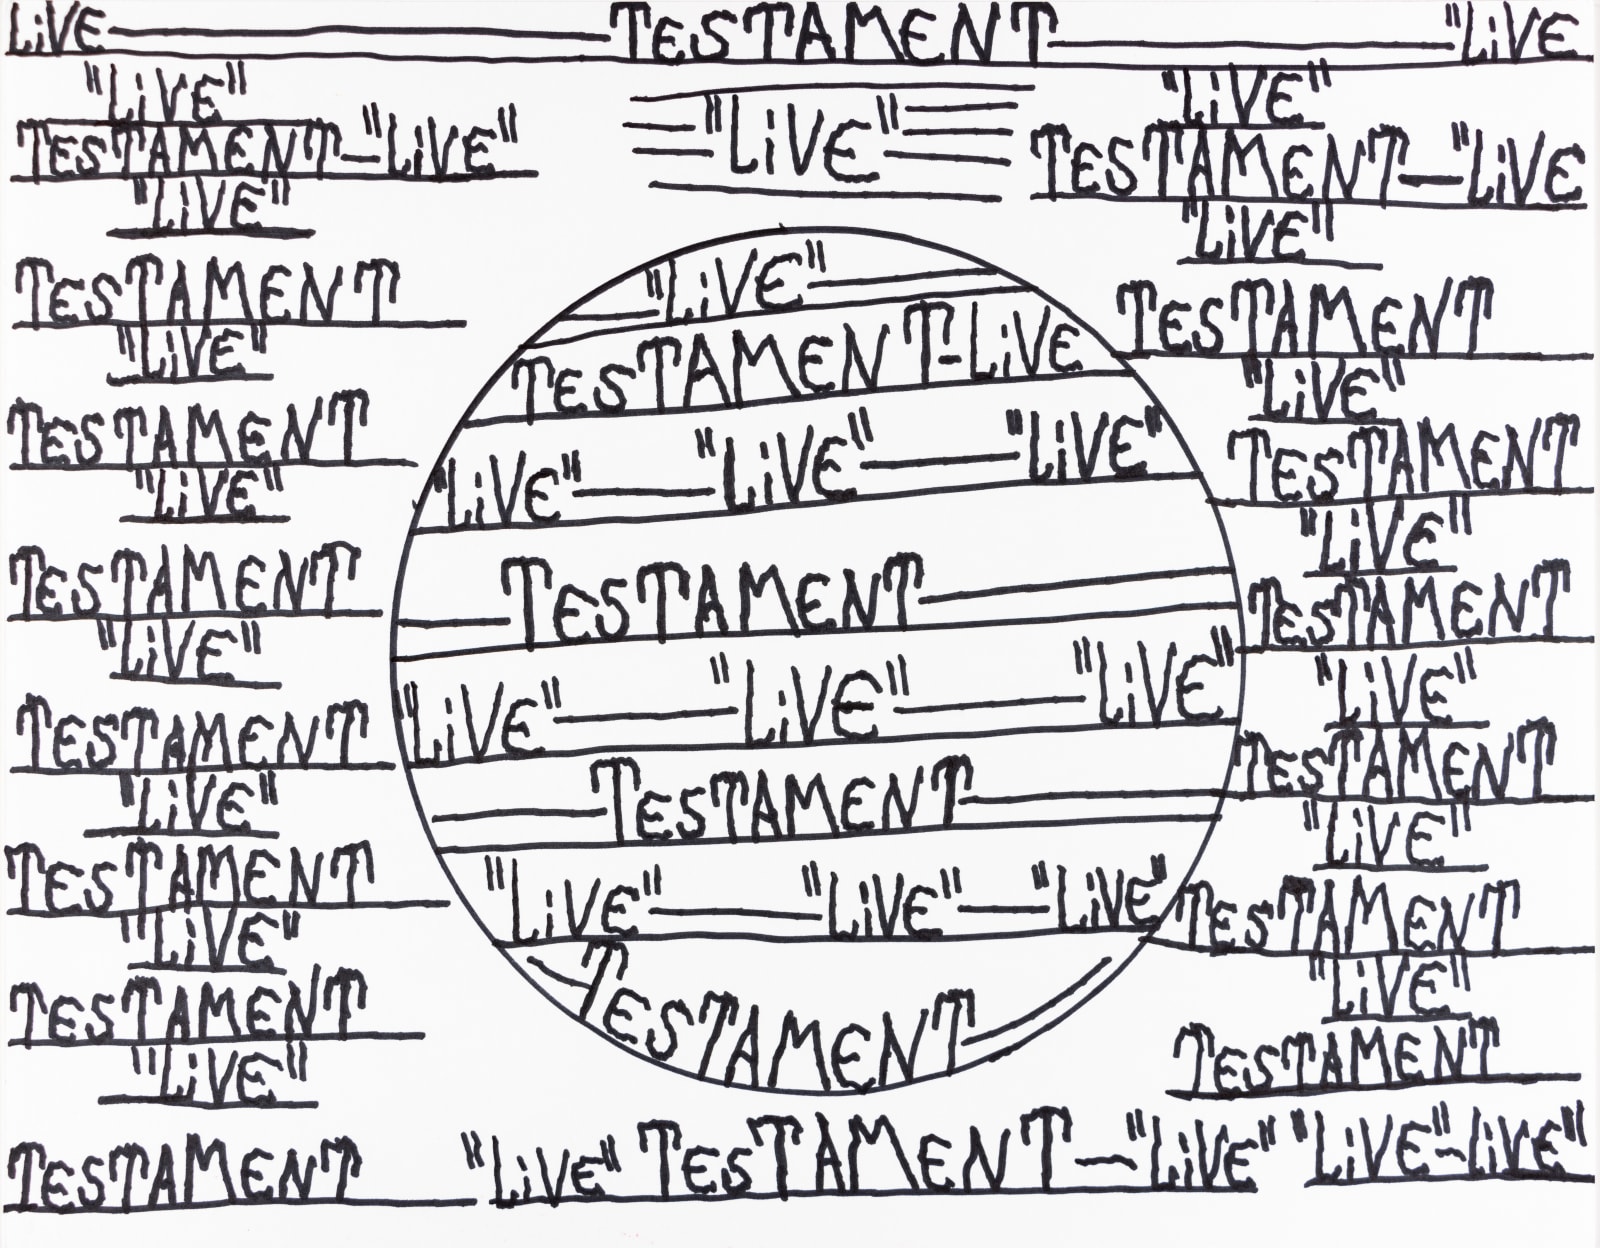 LiVE TESTAMENT "LiVE
"LiVE"
TESTAMENT-"LiVE"
"LiVE"
TESTAMENT
"LiVE"
TESTAMENT
"LiVE"
TESTAMENT
"LiVE"
TESTAMENT
"LiVE"
TESTAMENT
"LiVE"
TESTAMENT
"LiVE"
TESTAMENT
"LiVE"
"LiVE"
TESTAMENT-LiVE
"LiVE" "LiVE" "LiVE"
TESTAMENT
"LiVE" "LiVE" "LiVE"
TESTAMENT
"LiVE" "LiVE" "LiVE"
TESTAMENT
"LiVE"
TESTAMENT-"LiVE
"LiVE"
TESTAMENT
"LiVE"
TESTAMENT
"LiVE"
TESTAMENT
"LiVE"
TESTAMENT
"LiVE"
TESTAMENT
"LiVE"
TESTAMENT
"LiVE" TESTAMENT-"LiVE" "LiVE"-LiVE"